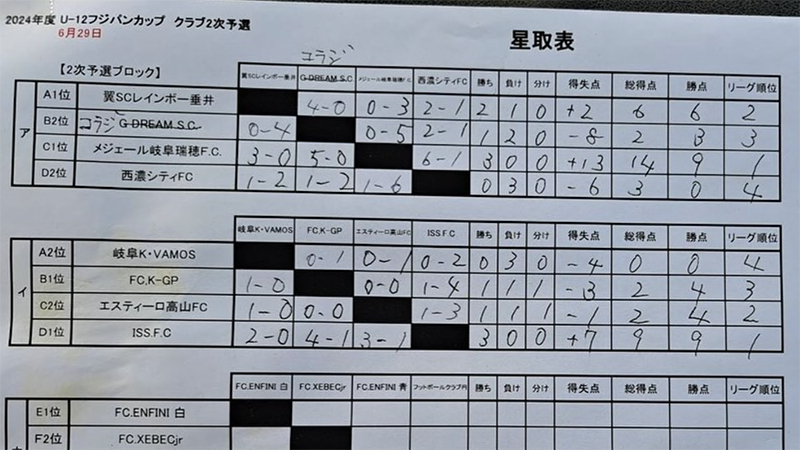 2024年度 U-12フジパンカップ クラブ2次予選
6月29日
星取表
【2次予選ブロック】
コラジ
翼SCレインボー垂井 G DREAM S.C. メジェール岐阜瑞穂F.C. 西濃シティFC 勝ち 負け 分け 得失点 総得点 勝点 リーグ順位
ア
A1位 翼SCレインボー垂井 4-0 0-3 2-1 2 1 0 +2 6 6 2
B2位 コラジ G DREAM S.C. 0-4 0-5 2-1 1 2 0 -8 2 3 3
C1位 メジェール岐阜瑞穂F.C. 3-0 5-0 6-1 3 0 0 +13 14 9 1
D2位 西濃シティFC 1-2 1-2 1-6 0 3 0 -6 3 0 4
岐阜K・VAMOS FC.K-GP エスティーロ高山FC ISS.F.C 勝ち 負け 分け 得失点 総得点 勝点 リーグ順位
イ
A2位 岐阜K・VAMOS 0-1 0-1 0-2 0 3 0 -4 0 0 4
B1位 FC.K-GP 1-0 0-0 1-4 1 1 1 -3 2 4 3
C2位 エスティーロ高山FC 1-0 0-0 1-3 1 1 1 -1 2 4 2
D1位 ISS.F.C 2-0 4-1 3-1 3 0 0 +7 9 9 1
FC.ENFINI 白 FC.XEBECjr FC.ENFINI 青 フットボールクラブ円 勝ち 負け 分け 得失点 総得点 勝点 リーグ順位
E1位 FC.ENFINI 白
F2位 FC.XEBECjr